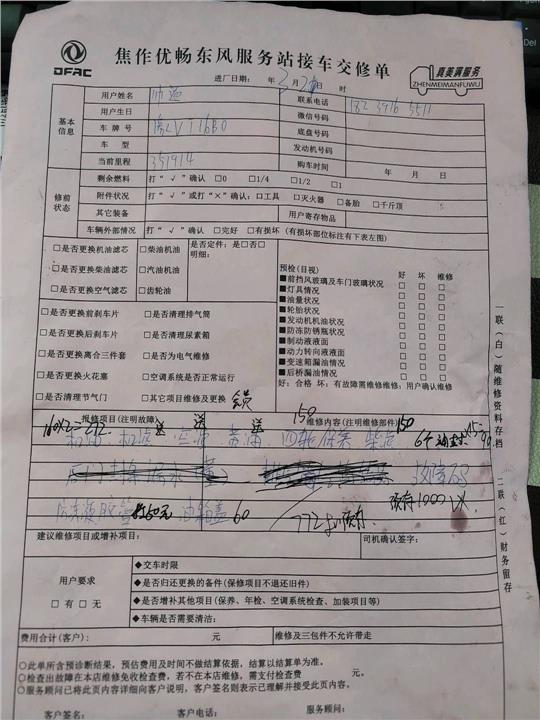 DFAC
焦作优畅东风服务站接车交修单
真美满服务
ZHENMEIMANFUWU
进厂日期: 年 3月2 日 时
基本信息
用户姓名 联系电话
用户生日 微信号码
车牌号 底盘号码
车型 发动机号码
当前里程 351914 购车时间 年 月 日
修前状态
剩余燃料 打“√”确认 □0 □1/4 □1/2 □1
附件状况 打“√”或打“×”确认: □工具 □灭火器 □备胎 □千斤顶
其它装备 用户寄存物品
车辆外部情况 打“√”确认 □完好 □有损坏 (有损坏部位标注有下表左图)
□是否更换机油滤芯 □柴油机油 是否定件: 是□否□
□是否更换柴油滤芯 □汽油机油 明细:
□是否更换空气滤芯 □齿轮油
预检(目视) 好 坏 维修
■前挡风玻璃及车门玻璃状况 □ □ □
■灯具情况 □ □ □
■油量状况 □ □ □
■轮胎状况 □ □ □
■发动机机油状况 □ □ □
■防冻防锈瓶状况 □ □ □
■制动液液面 □ □ □
■动力转向液液面 □ □ □
■变速箱漏油情况 □ □ □
■后桥漏油情况 □ □ □
好: 合格 坏: 有故障需维修维修: 用户确认维修
□是否更换前刹车片 □是否清理排气筒
□是否更换后刹车片 □是否清理尿素箱
□是否更换离合三件套 □是否为电气维修
□是否更换火花塞 □空调系统是否正常运行
□是否清理节气门 □其它项目维修及更换
报修项目(注明故障) 维修内容(注明维修部件)
送 送 送 150 150
机油 机滤 空滤 黄油 四轮保养 柴滤
60
建议维修项目或增补项目: 司机确认签字:
用户要求
□有 □无
◆交车时限
◆是否归还更换的备件(保修项目不退还旧件)
◆是否增补其他项目(保养、年检、空调系统检查、加装项目等)
◆车辆是否需要清洁:
费用合计(客户): 元 维修及三包件不允许带走
○此单所含预诊断结果, 预估费用及时间不做结算依据, 结算以结算单为准。
○检查出故障在本店维修免收检查费, 若不在本店维修, 需支付检查费 元。
○服务顾问已将此页内容详细向客户说明, 客户签名则表示已理解并接受此页内容。
客户签名: 客户电话: 服务顾问:
一联(白)随维修资料存档
二联(红)财务留存